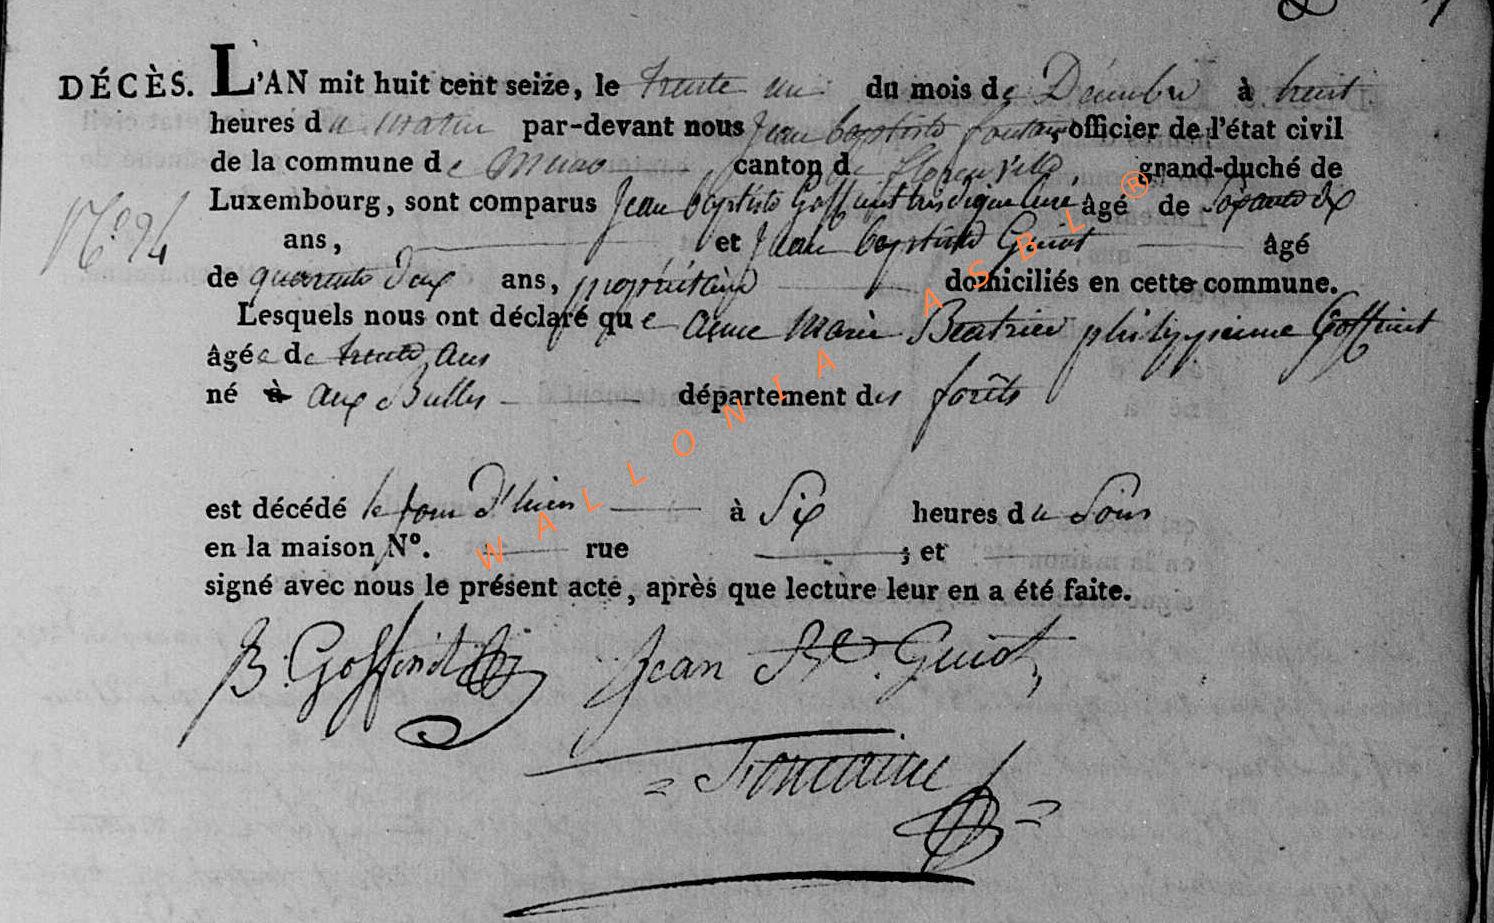 DÉCÈS. L'AN mit huit cent seize, le trente un du mois de Décembre à huit
heures du matin par-devant nous Jean baptiste fontaine officier de l'état civil
de la commune de Muno canton de florenville grand-duché de
Luxembourg, sont comparus Jean baptiste Goffinet âgé de soixante dix
N.° 24
ans, et Jean baptiste Guiot âgé
de quarante deux ans, propriétaire domiciliés en cette commune.
Lesquels nous ont déclaré que anne Marie Beatrice philippinne Goffinet
âgée de trente ans
né à aux Bulles département des forêts
est décédé le jour d'hier à Six heures du Soir
en la maison N°. rue ; et
signé avec nous le présent acte, après que lecture leur en a été faite.
B. Goffinet Jean Bte. Guiot
Fontaine
WALLONIA ASBL ®